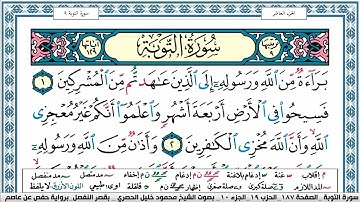 الجزء العاشر
سورة التوبة ٩
سُورَةُ التَّوْبَةِ
آياتها ١٢٩
بَرَآءَةٌ مِّنَ ٱللَّهِ وَرَسُولِهِۦٓ إِلَى ٱلَّذِينَ عَـٰهَدتُّم مِّنَ ٱلْمُشْرِكِينَ ١
فَسِيحُوا۟ فِى ٱلْأَرْضِ أَرْبَعَةَ أَشْهُرٍ وَٱعْلَمُوٓا۟ أَنَّكُمْ غَيْرُ مُعْجِزِى
ٱللَّهِ وَأَنَّ ٱللَّهَ مُخْزِى ٱلْكَـٰفِرِينَ ٢ وَأَذَٰنٌ مِّنَ ٱللَّهِ وَرَسُولِهِۦٓ
سورة التوبة الصفحة ١٨٧ الحزب ١٩ الجزء ١٠ بصوت الشيخ محمود خليل الحصري بقصر المنفصل برواية حفص عن عاصم